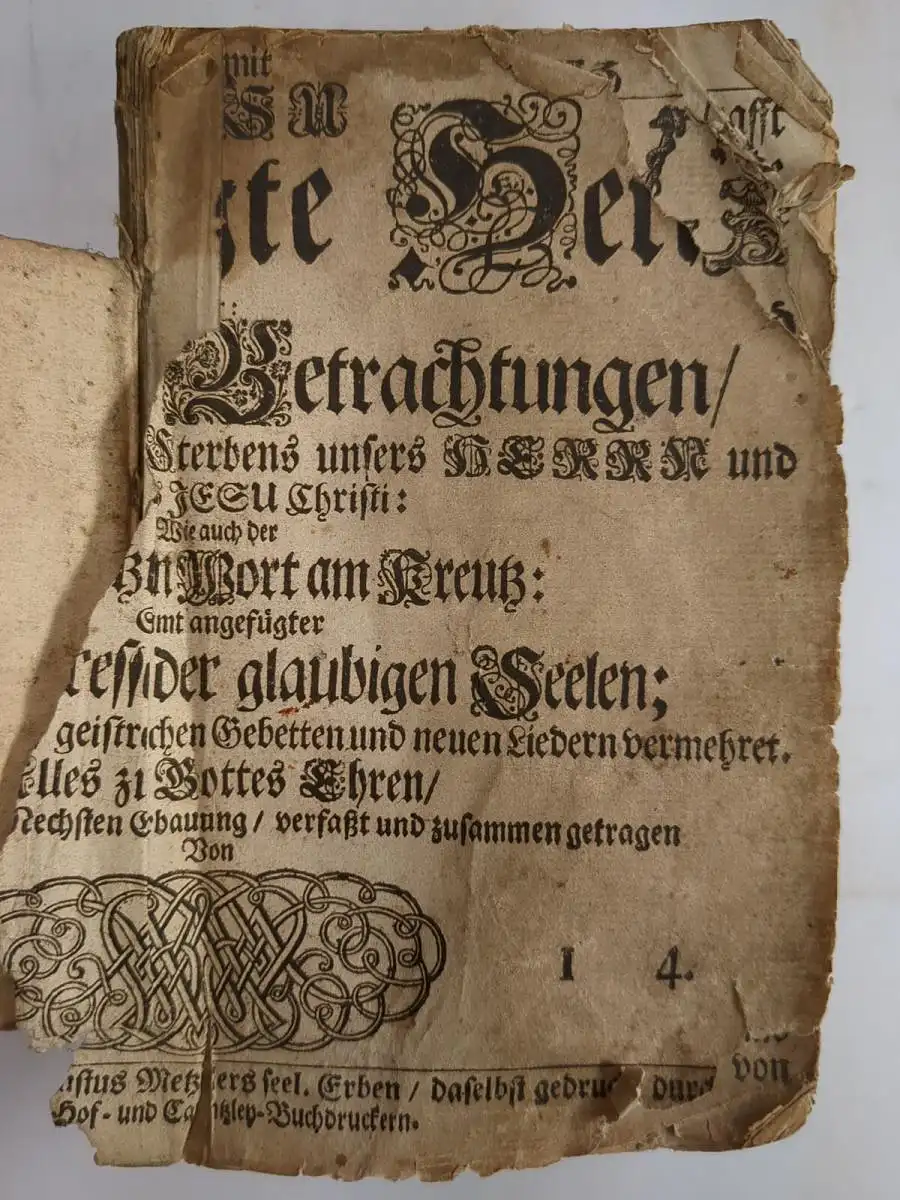 mit
SU afft
zte Hertz
Betrachtungen/
Sterbens unsers HERRN und
JESU Christi:
Wie auch der
Wort am Kreutz:
angefügter
der glaubigen Seelen;
geistrichen Gebetten und neuen Liedern vermehret.
Alles zu Gottes Ehren/
Nechsten Erbauung/ verfaßt und zusammen getragen
Von
1 4.
von
Metzlers seel. Erben/ daselbst gedruckt durch
Hof- und Cantzley-Buchdruckern.